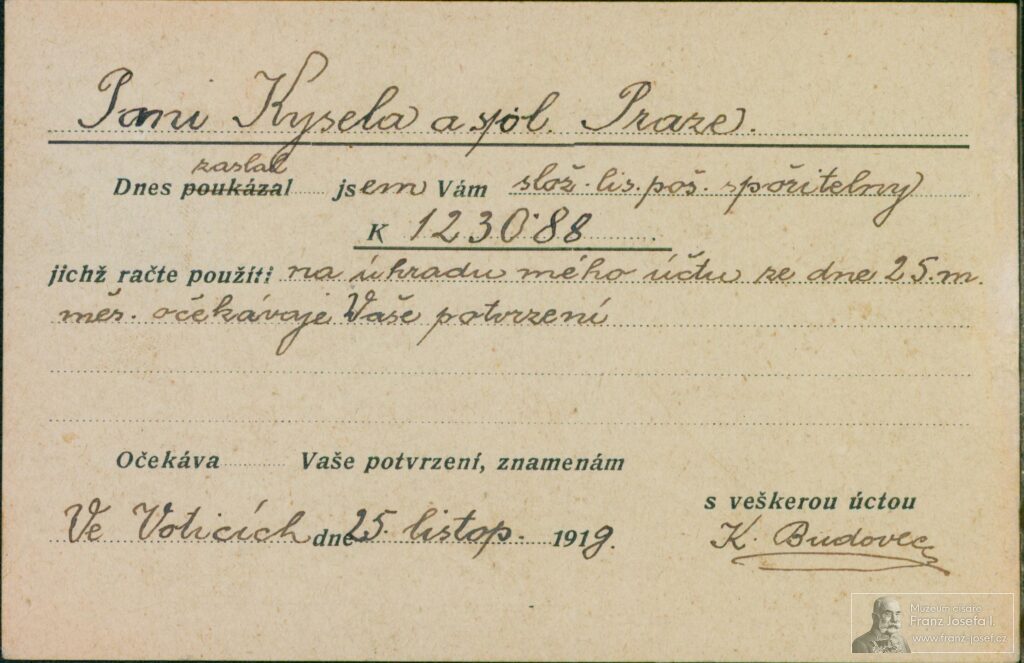 Pani Kysela a spol. Praze.
zaslal
Dnes poukázal jsem Vám slož. lis. poš. spořitelny
K 1230·88
jichž račte použíti na úhradu mého účtu ze dne 25. m.
měs. očekávaje Vaše potvrzení
Očekáva Vaše potvrzení, znamenám
s veškerou úctou
Ve Voticích dne 25. listop. 1919.
K. Budovec
Muzeum císaře
Franz Josefa I.
www.franz-josef.cz